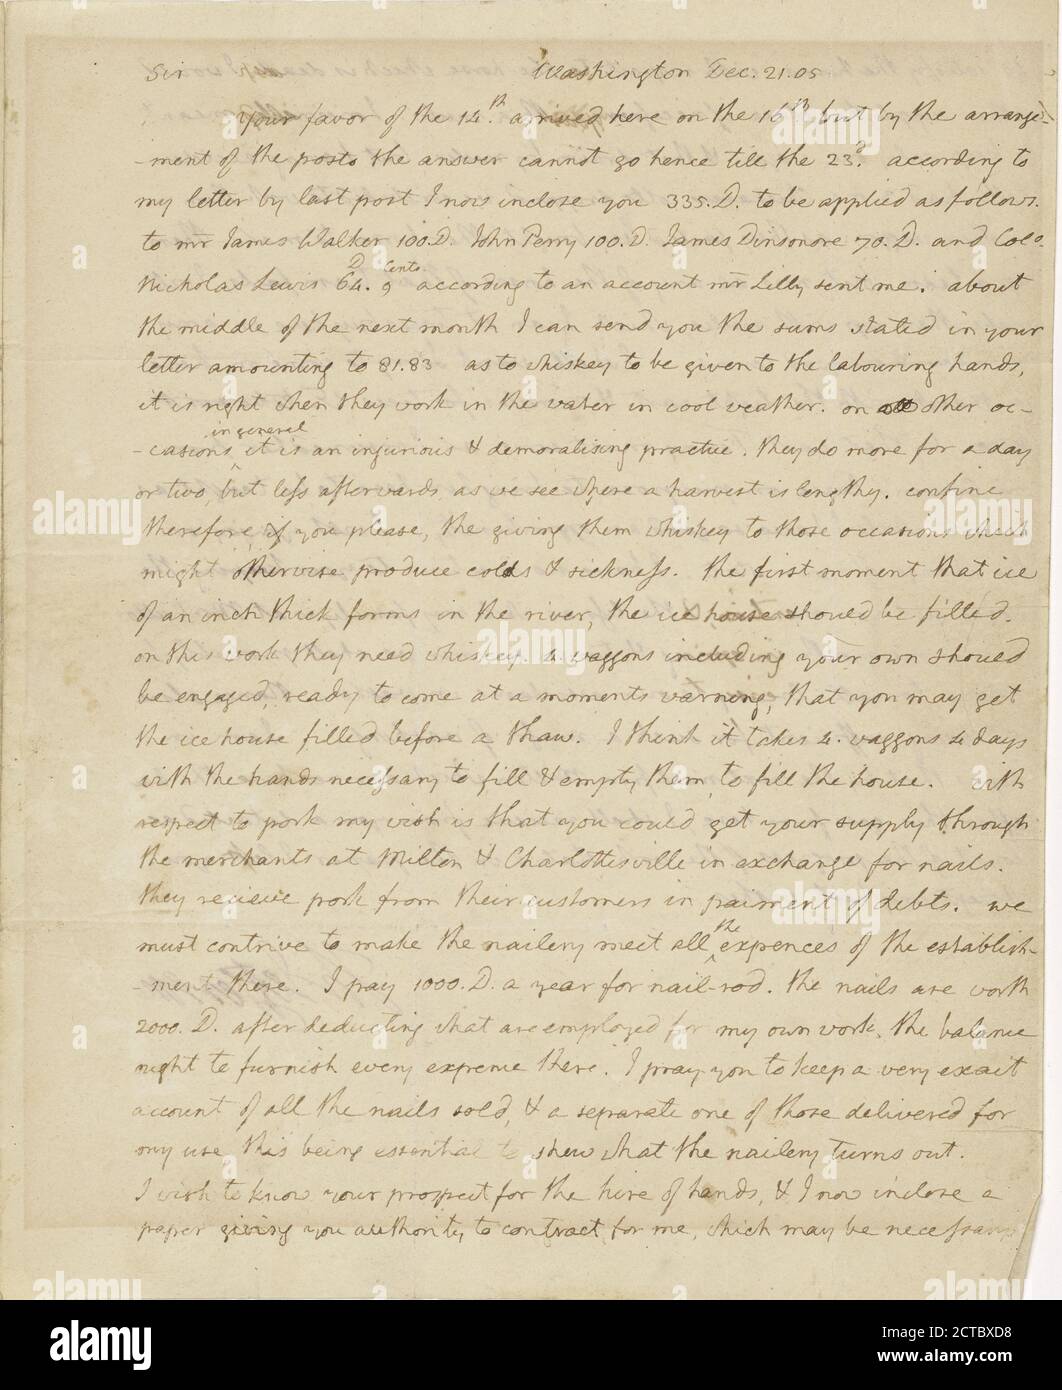 Sir Washington Dec. 21. 05
Your favor of the 14th. arrived here on the 16th but by the arrange-
-ment of the posts the answer cannot go hence till the 23d. according to
my letter by last post I now inclose you 335. D. to be applied as follows.
to mr James Walker 100. D. John Perry 100. D. James Dinsmore 70. D. and Colo.
Nicholas Lewis 64. D 9 cents according to an account mr Lilly sent me. about
the middle of the next month I can send you the sums stated in your
letter amounting to 81.83 as to whiskey to be given to the labouring hands,
it is right when they work in the water in cool weather. on other oc-
-casions in general it is an injurious & demoralising practice. they do more for a day
or two, but less afterwards, as we see where a harvest is lengthy. confine
therefore, if you please, the giving them whiskey to those occasions which
might otherwise produce colds & sickness. the first moment that ice
of an inch thick forms in the river, the ice house should be filled.
on this work they need whiskey. 4. waggons including your own should
be engaged, ready to come at a moments warning, that you may get
the ice house filled before a thaw. I think it takes 4. waggons 4 days
with the hands necessary to fill & empty them, to fill the house. with
respect to pork my wish is that you could get your supply through
the merchants at Milton & Charlottesville in exchange for nails.
they recieve pork from their customers in paiment of debts. we
must contrive to make the nailery meet all the expences of the establish-
-ment there. I pay 1000. D. a year for nail-rod. the nails are worth
2000. D. after deducting what are employed for my own work. the balance
ought to furnish every expence there. I pray you to keep a very exact
account of all the nails sold, & a separate one of those delivered for
my use this being essential to shew what the nailery turns out.
I wish to know your prospect for the hire of hands, & I now inclose a
paper giving you authority to contract for me, which may be necessary
alamy
Image ID: 2CTBXD8
www.alamy.com